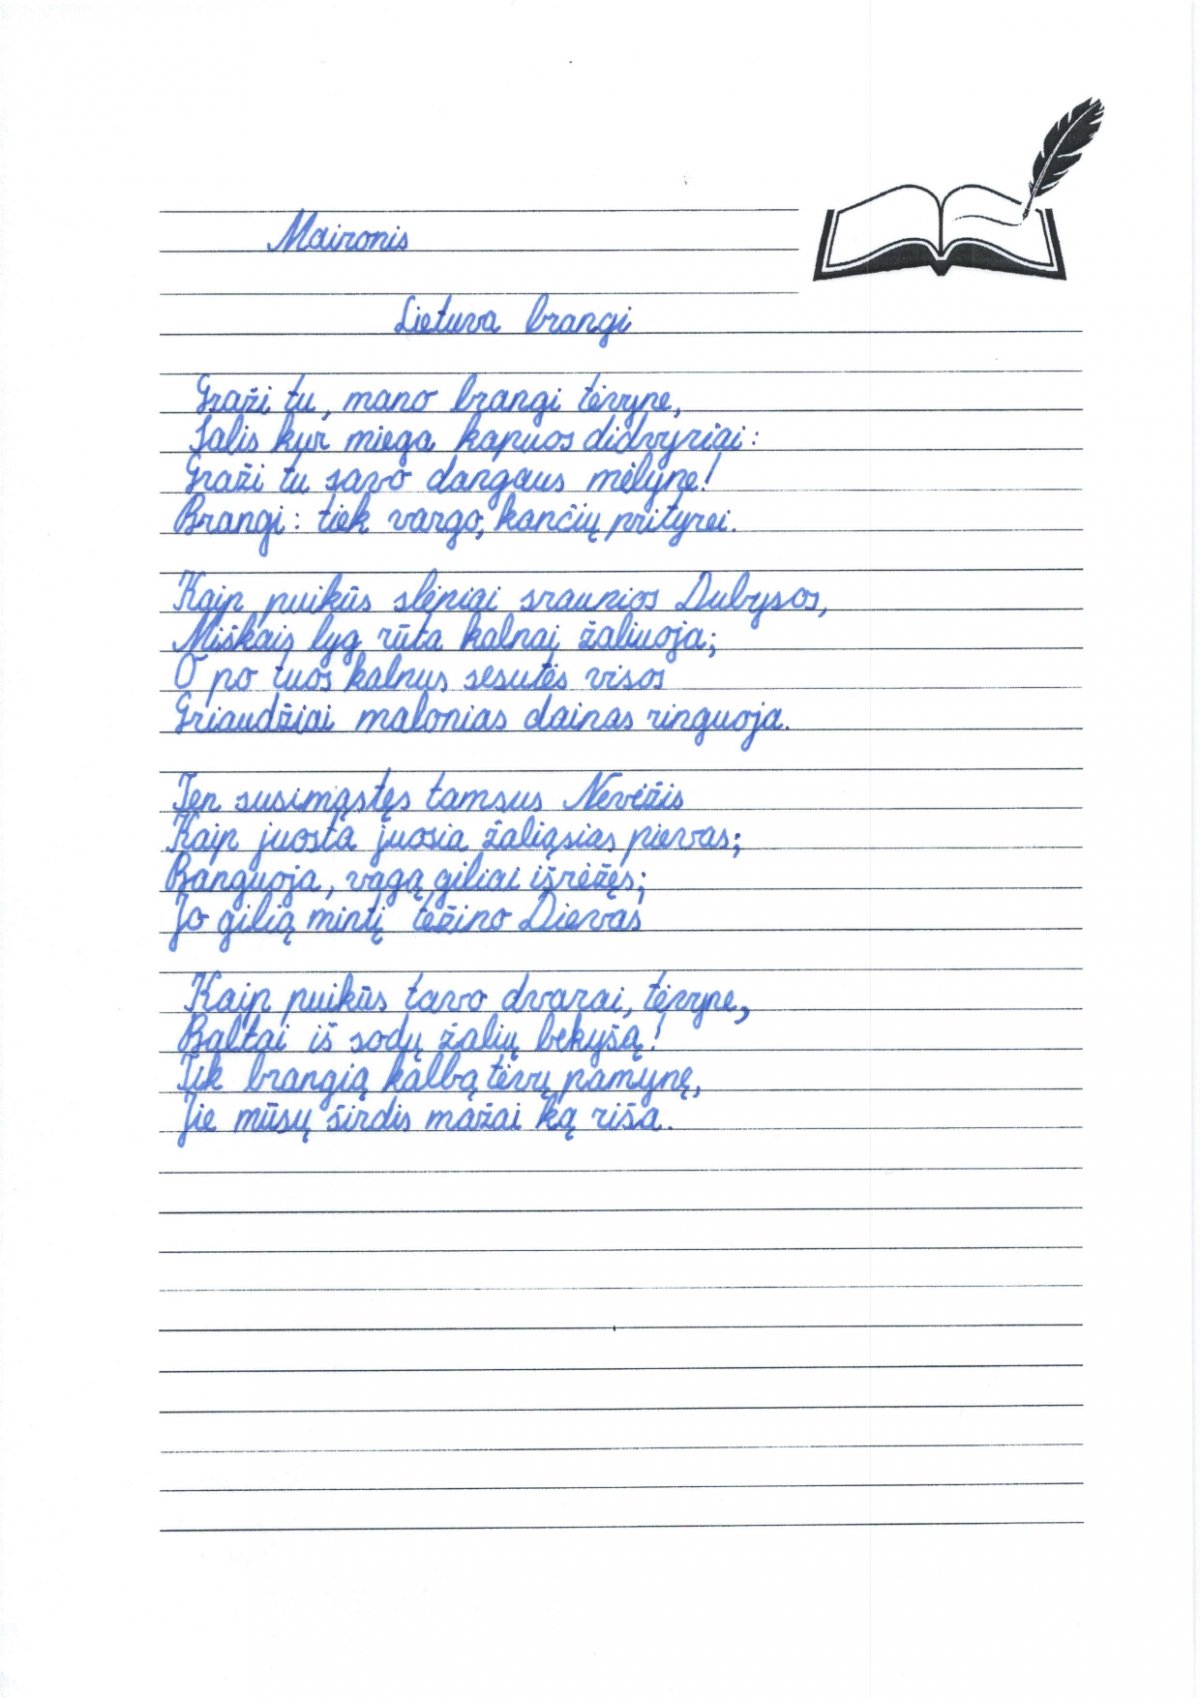 Maironis
Lietuva brangi
Graži tu, mano brangi tėvyne,
Šalis kur miega kapuos didvyriai:
Graži tu savo dangaus mėlyne!
Brangi: tiek vargo, kančių prityrei.
Kaip puikūs slėniai sraunios Dubysos,
Miškais lyg rūta kalnai žaliuoja;
O po tuos kalnus sesutės visos
Griaudžiai malonias dainas ringuoja.
Ten susimąstęs tamsus Nevėžis
Kaip juosta juosia žaliąsias pievas;
Banguoja, vagą giliai išrėžęs;
Jo gilią mintį težino Dievas
Kaip puikūs tavo dvarai, tėvyne,
Baltai iš sodų žalių bekyšą!
Tik brangią kalbą tėvų pamynę,
Jie mūsų širdis mažai ką riša.